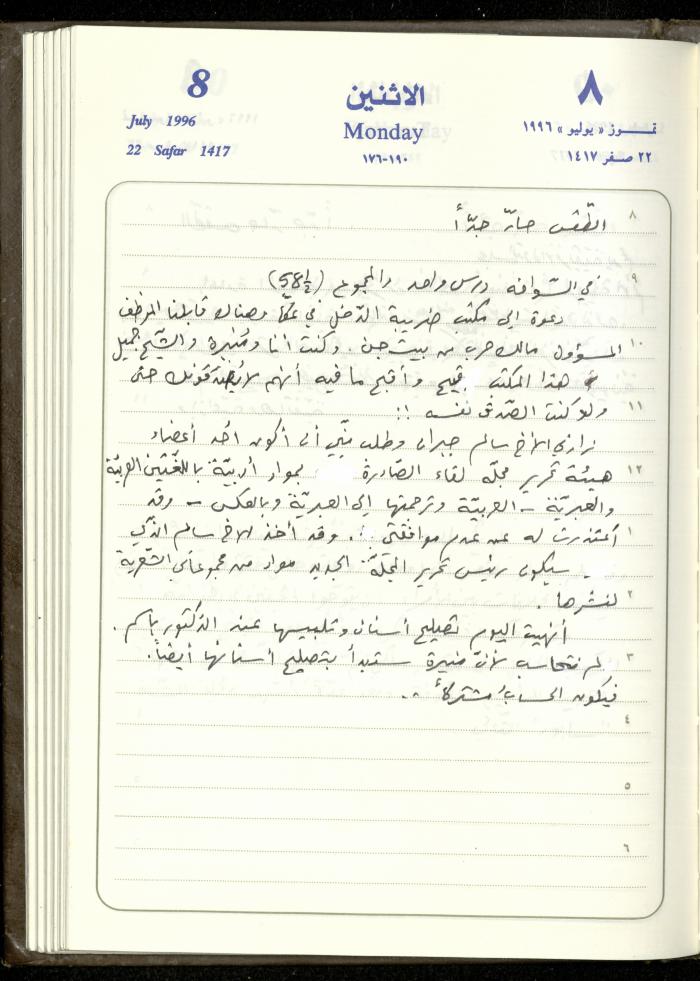 8
الاثنين
٨
July 1996
Monday
تموز «يوليو» ١٩٩٦
22 Safar 1417
١٩٠-١٧٦
٢٢ صفر ١٤١٧
٨ الطّقس حارّ جدّاً
٩ في السّواقه درس واحد والمجموع (58½)
دعوة إلى مكتب ضريبة الدّخل في عكّا وهناك قابلنا الموظف
١٠ المسؤول مالك حرب من بيت جن. وكنت أنا ومنيرة والشّيخ جميل
هذا المكتب قبيح وأقبح ما فيه أنهم لا يُصدّقونك حتى
١١ ولو كنت الصّدق نفسه !!
زارني الأخ سالم جبران وطلب منّي أن أكون أحد أعضاء
١٢ هيئة تحرير مجلّة لقاء الصّادرة بمواد أدبيّة باللّغتين العربيّة
والعبريّة - العربيّة وترجمتها إلى العبريّة وبالعكس - وقد
١ اعتذرت له عن عدم موافقتي. وقد أخذ الأخ سالم الذي
سيكون رئيس تحرير المجلّة الجديد مواد من مجموعاتي الشّعرية
٢ لنشرها.
أنهيت اليوم تصليح أسناني وتلبيسها عند الدّكتور باسم.
٣ لم نتحاسب لأنّ منيرة ستبدأ بتصليح أسنانها أيضاً.
فيكون الحسابُ مشتركاً..
٤
٥
٦